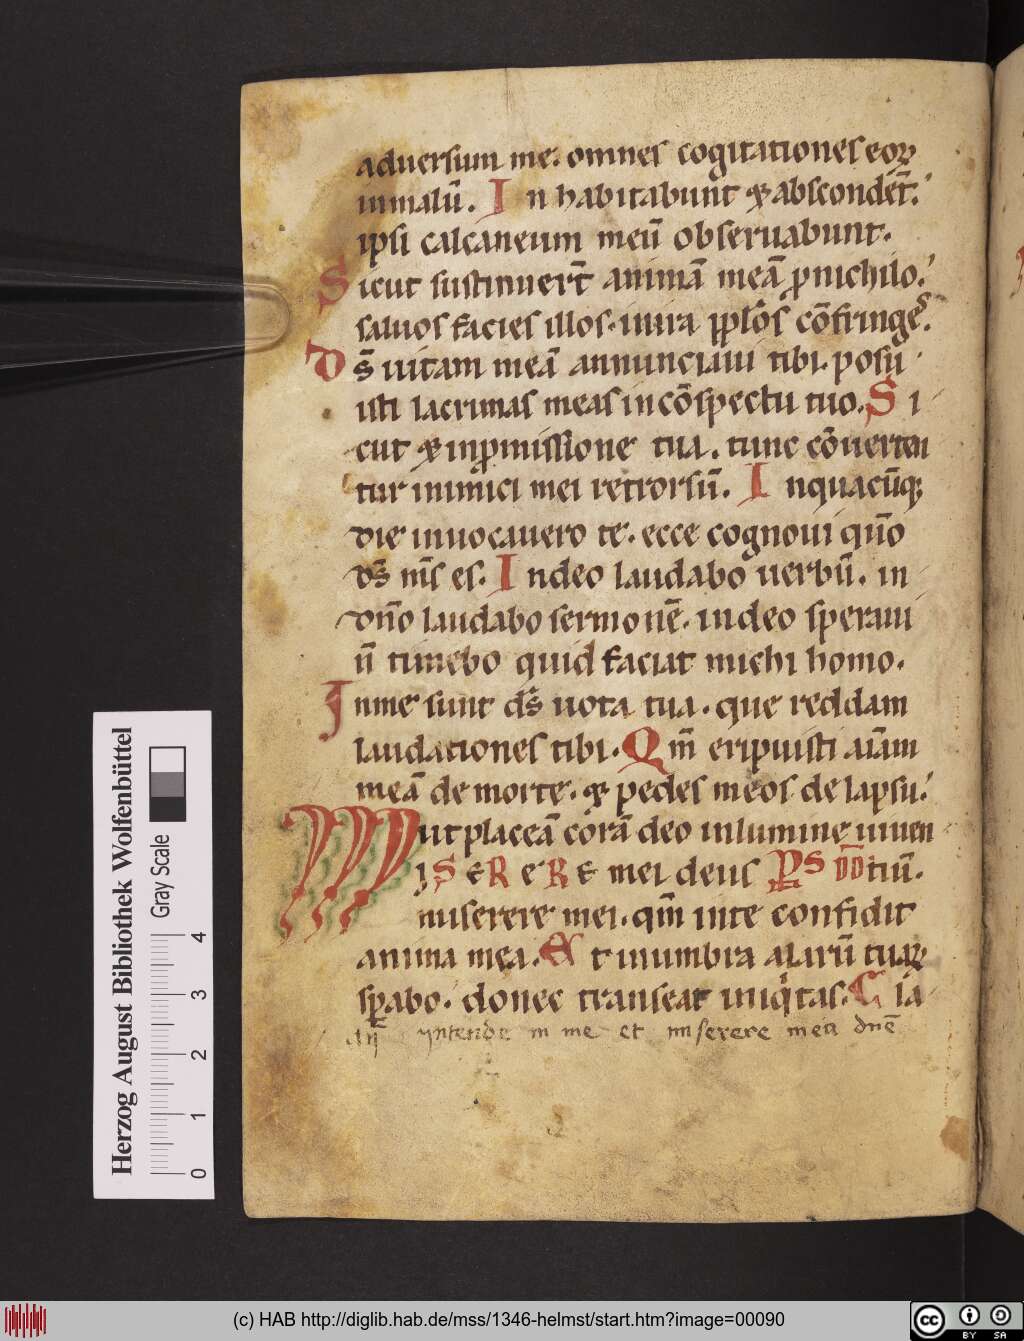 aduersum me. omnes cogitationes eoꝝ
inmalū. In habitabunt ⁊ abscondēt.
ipsi calcaneum meū obseruabunt.
Sicut sustinuer̄t animā meā ꝓ nichilo.
saluos facies illos. inira pplōs cōfringes.
Ds̄ uitam meā annunciaui tibi. posu
isti lacrimas meas in cōspectu tuo. Si
cut ⁊ inꝓmissione tua. tunc cōuerten
tur inimici mei retrorsū. Inquacūq;
die inuocauero te. ecce cognoui qūo
ds̄ ms̄ es. Indeo laudabo uerbū. in
dn̄o laudabo sermonē. indeo speraui
n̄ timebo quid faciat michi homo.
Inme sunt ds̄ uota tua. que reddam
laudationes tibi. Qm̄ eripuisti aīam
meā de morte. ⁊ pedes meos de lapsu.
ut placeā corā deo inlumine uiuen
MISERERE mei deus PS DD tiū.
miserere mei. qm̄ inte confidit
anima mea. Et inumbra alarū tuaꝝ
sꝑabo. donec transeat iniq̇tas. Cla
yntende in me et miserere mei dnē
Herzog August Bibliothek Wolfenbüttel
Gray Scale
0 1 2 3 4
(c) HAB http://diglib.hab.de/mss/1346-helmst/start.htm?image=00090
cc BY SA